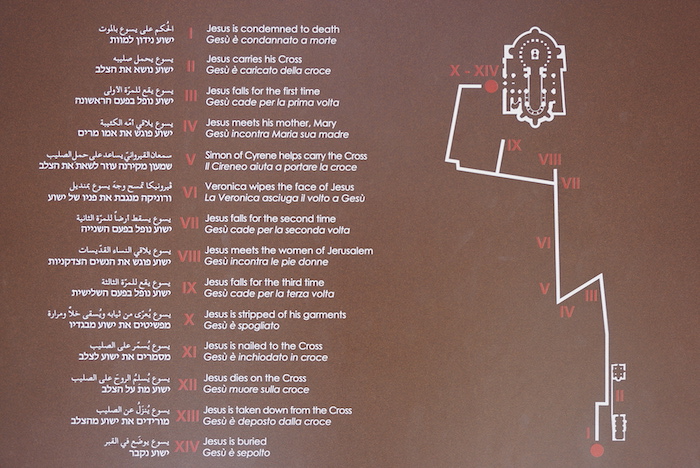 الحُكم على يسوع بالموت
ישוע נידון למוות
I
Jesus is condemned to death
Gesù è condannato a morte
يسوع يحمل صليبه
ישוע נושא את הצלב
II
Jesus carries his Cross
Gesù è caricato della croce
يسوع يقع للمرّة الأولى
ישוע נופל בפעם הראשונה
III
Jesus falls for the first time
Gesù cade per la prima volta
يسوع يلاقي أمّه
ישוע פוגש את אמו מרים
IV
Jesus meets his mother, Mary
Gesù incontra Maria sua madre
سمعان القيروانيّ يساعد على حمل الصليب
שמעון מקירנה עוזר לשאת את הצלב
V
Simon of Cyrene helps carry the Cross
Il Cireneo aiuta a portare la croce
ڤيرونيكا تمسح وجه يسوع بمنديل
ורוניקה מנגבת את פניו של ישוע
VI
Veronica wipes the face of Jesus
La Veronica asciuga il volto a Gesù
يسوع يسقط أرضاً للمرّة الثانية
ישוע נופל בפעם השנייה
VII
Jesus falls for the second time
Gesù cade per la seconda volta
يسوع يلاقي النساء القدّيسات
ישוע פוגש את הנשים הצדקניות
VIII
Jesus meets the women of Jerusalem
Gesù incontra le pie donne
يسوع يقع للمرّة الثالثة
ישוע נופל בפעם השלישית
IX
Jesus falls for the third time
Gesù cade per la terza volta
يسوع يُعرّى من ثيابه ويُسقى خلاًّ ومرارة
מפשיטים את ישוע מבגדיו
X
Jesus is stripped of his garments
Gesù è spogliato
يسوع يُسمّر على الصليب
מסמרים את ישוע לצלב
XI
Jesus is nailed to the Cross
Gesù è inchiodato in croce
يسوع يُسلِمُ الروحَ على الصليب
ישוע מת על הצלב
XII
Jesus dies on the Cross
Gesù muore sulla croce
يسوع يُنزَلُ عن الصليب
מורידים את ישוע מהצלב
XIII
Jesus is taken down from the Cross
Gesù è deposto dalla croce
يسوع يوضَع في القبر
ישוע נקבר
XIV
Jesus is buried
Gesù è sepolto
X - XIV
IX
VIII
VII
VI
V
IV
III
II
I